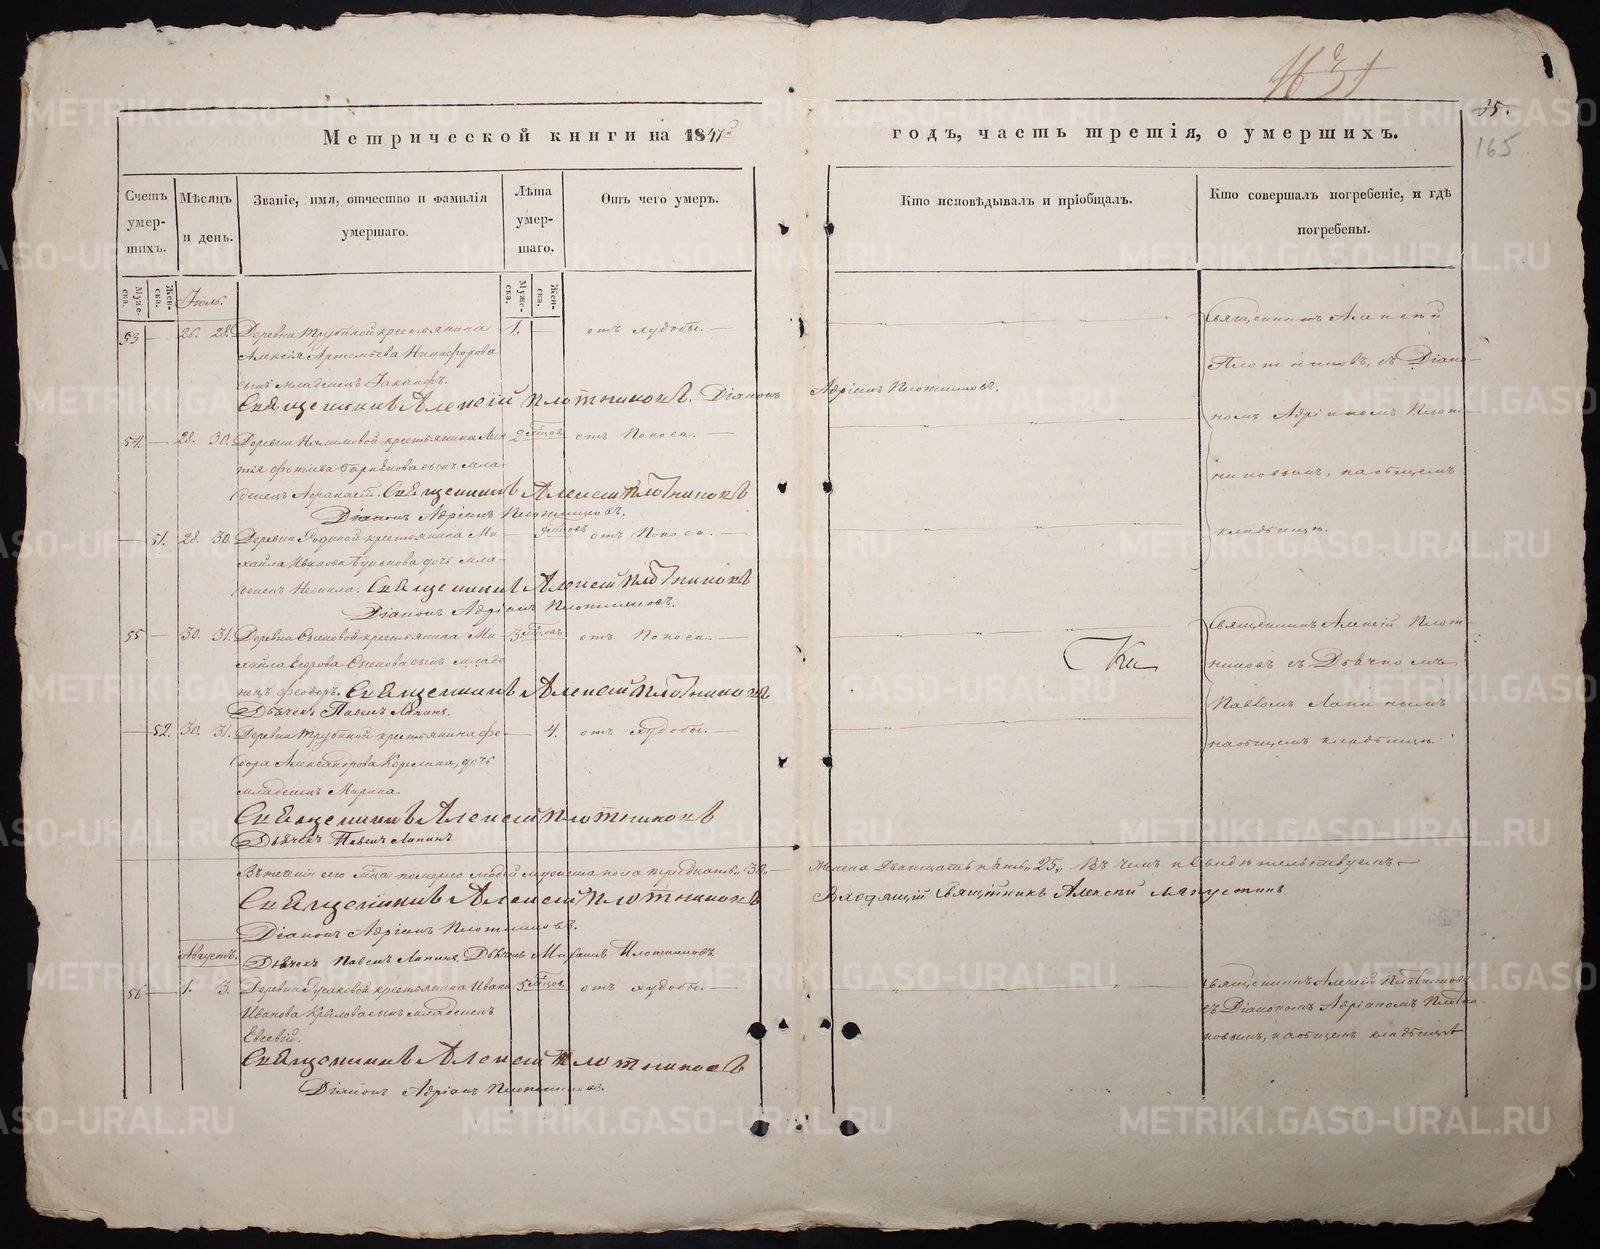 1631
35.
165
Метрической книги на 1847й
годъ, часть третія, о умершихъ.
Счетъ умер-шихъ.
Мѣсяцъ и день.
Званіе, имя, отчество и фамилія умершаго.
Лѣта умер-шаго.
Отъ чего умеръ.
Кто исповѣдывалъ и пріобщалъ.
Кто совершалъ погребеніе, и гдѣ погребены.
Муже-ска.
Жен-ска.
Муже-ска.
Жен-ска.
Іюль.
53 — 26. 28. Деревни Трубиной крестьянина 1. — отъ худобы. —
Алексія Артемьева Никифорова
сынъ младенецъ
Священникъ Алексій Плотниковъ. Діаконъ Адріанъ Плотниковъ.
Священникъ Алексій
Плотниковъ, съ Діако-
номъ Адріаномъ Плот-
никовымъ, на общемъ
кладбищѣ.
54. — 28. 30. Деревни крестьянина 2 мѣсцовъ отъ поноса. —
сынъ мла-
денецъ Афанасій. Священникъ Алексій Плотниковъ
Діаконъ Адріанъ Плотниковъ.
— 51. 28. 30. Деревни крестьянина Ми- — 9 мѣсцовъ отъ поноса. —
хайла Иванова дочь мла-
денецъ Неонила. Священникъ Алексій Плотниковъ
Діаконъ Адріанъ Плотниковъ.
55 — 30. 31. Деревни крестьянина Ми- 3 мѣсцовъ отъ поноса. —
хайла Егорова сынъ младе-
нецъ Феодоръ. Священникъ Алексій Плотниковъ
Дьячекъ Павелъ Лапинъ.
Священникъ Алексій Плот-
никовъ съ Дьячкомъ
Павломъ Лапинымъ
на общемъ кладбищѣ.
— 52. 30. 31. Деревни Трубиной крестьянина Фе- — 4. отъ худобы. —
дора Александрова Корелина, дочь
младенецъ Марина.
Священникъ Алексій Плотниковъ
Дьячекъ Павелъ Лапинъ
Въ теченіи сего мѣца померло людей мужеска пола тридцать „30„
Женска двадцать пять „25„ Въ чемъ и свидѣтельствуемъ —
Священникъ Алексій Плотниковъ
Священникъ Алексій
Діаконъ Адріанъ Плотниковъ.
Дьячекъ Павелъ Лапинъ. Дьячекъ Михаилъ Плотниковъ
Августъ.
56 — 1. 3. Деревни крестьянина Ивана 5 мѣсцовъ отъ худобы. —
Иванова Крылова сынъ младенецъ
Евсевій.
Священникъ Алексій Плотниковъ
Діаконъ Адріанъ Плотниковъ.
Священникъ Алексій Плотниковъ
съ Діакономъ Адріаномъ Плотни-
ковымъ, на общемъ кладбищѣ
METRIKI.GASO-URAL.RU